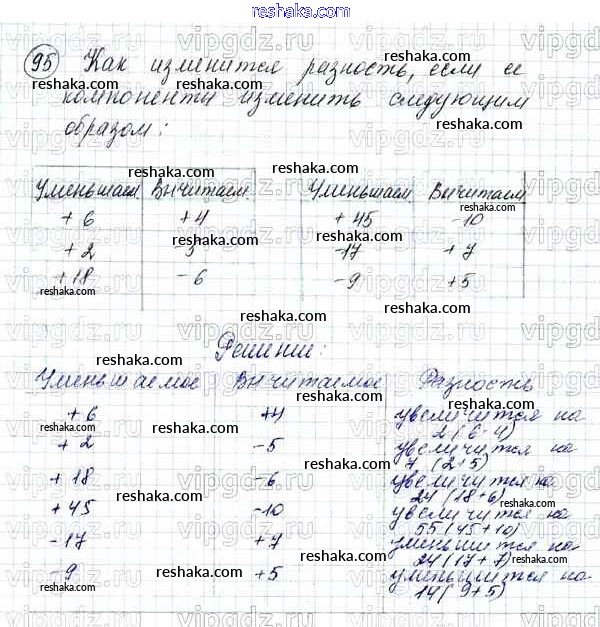 reshaka.com
95 Как изменится разность, если ее
компоненты изменить следующим
образом:
Уменьшаем. Вычитаем. Уменьшаем. Вычитаем.
+ 6 +4 + 45 -10
+ 2 -17 + 7
+18 - 6 -9 +5
Решение:
Уменьшаемое Вычитаемое Разность
+ 6 +4 увеличится на
2 (6-4)
+ 2 -5 увеличится на
7 (2+5)
+ 18 -6 увеличится на
24 (18+6)
+45 -10 увеличится на
55 (45+10)
-17 +7 уменьшится на
24 (17+7)
-9 +5 уменьшится на
14 (9+5)